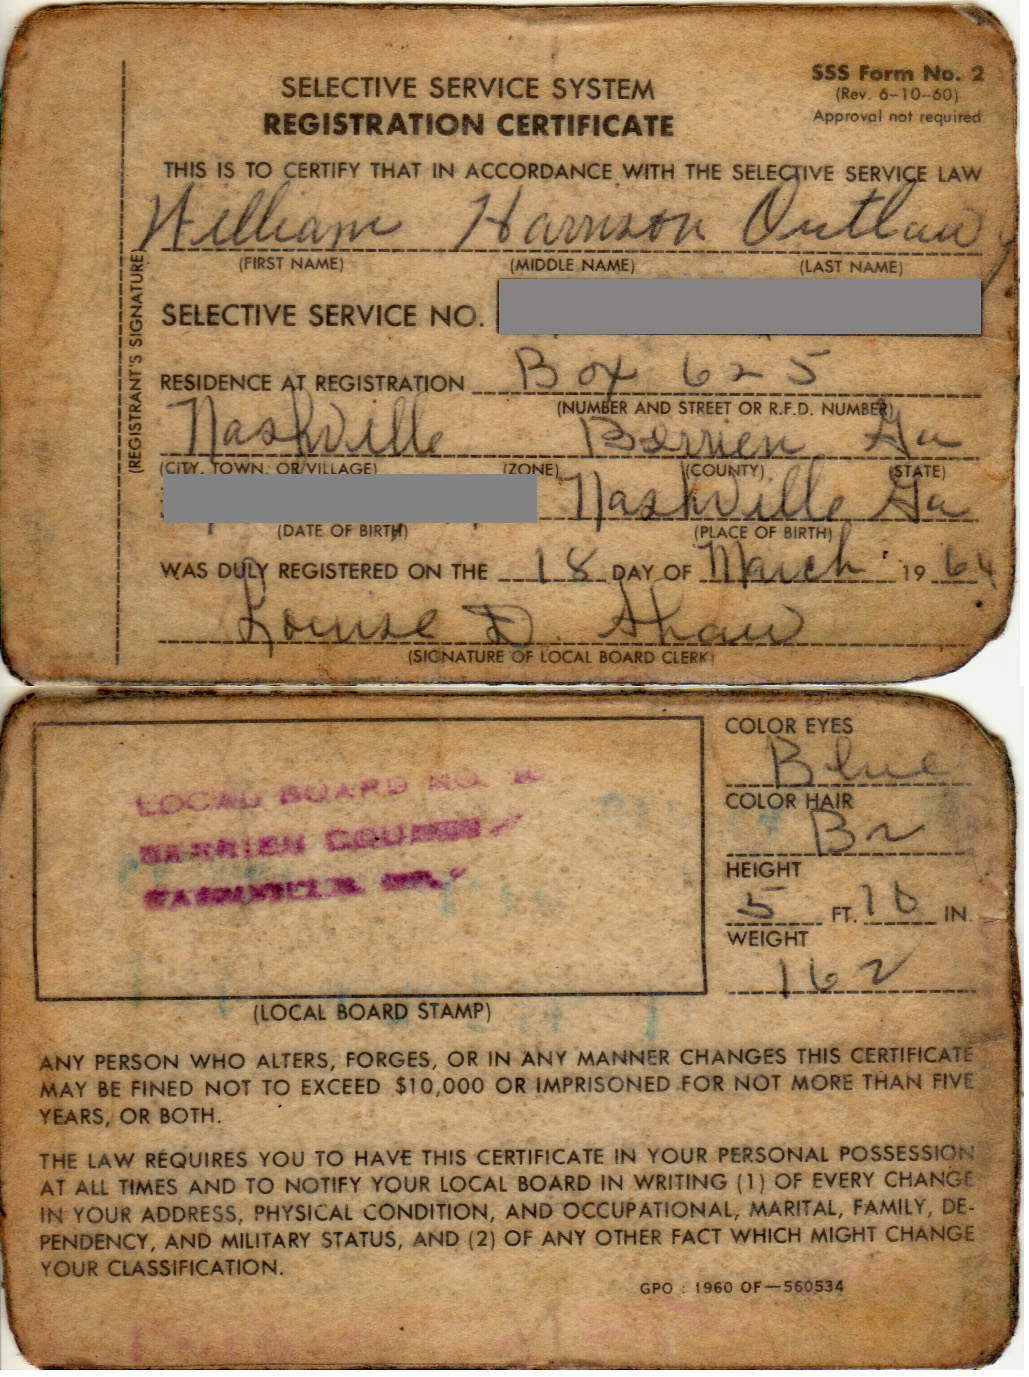 SELECTIVE SERVICE SYSTEM
REGISTRATION CERTIFICATE
SSS Form No. 2
(Rev. 6-10-60)
Approval not required
THIS IS TO CERTIFY THAT IN ACCORDANCE WITH THE SELECTIVE SERVICE LAW
William Harrison Outlaw
(FIRST NAME) (MIDDLE NAME) (LAST NAME)
(REGISTRANT'S SIGNATURE)
SELECTIVE SERVICE NO.
RESIDENCE AT REGISTRATION Box 625
(NUMBER AND STREET OR R.F.D. NUMBER)
Nashville Berrien Ga
(CITY, TOWN, OR VILLAGE) (ZONE) (COUNTY) (STATE)
Nashville Ga
(DATE OF BIRTH) (PLACE OF BIRTH)
WAS DULY REGISTERED ON THE 18 DAY OF March 19 64
Louise D. Shaw
(SIGNATURE OF LOCAL BOARD CLERK)
LOCAL BOARD NO.
BERRIEN COUNTY
NASHVILLE, GA.
(LOCAL BOARD STAMP)
COLOR EYES
Blue
COLOR HAIR
Br
HEIGHT
5 FT. 10 IN.
WEIGHT
162
ANY PERSON WHO ALTERS, FORGES, OR IN ANY MANNER CHANGES THIS CERTIFICATE
MAY BE FINED NOT TO EXCEED $10,000 OR IMPRISONED FOR NOT MORE THAN FIVE
YEARS, OR BOTH.
THE LAW REQUIRES YOU TO HAVE THIS CERTIFICATE IN YOUR PERSONAL POSSESSION
AT ALL TIMES AND TO NOTIFY YOUR LOCAL BOARD IN WRITING (1) OF EVERY CHANGE
IN YOUR ADDRESS, PHYSICAL CONDITION, AND OCCUPATIONAL, MARITAL, FAMILY, DE-
PENDENCY, AND MILITARY STATUS, AND (2) OF ANY OTHER FACT WHICH MIGHT CHANGE
YOUR CLASSIFICATION.
GPO : 1960 OF—560534